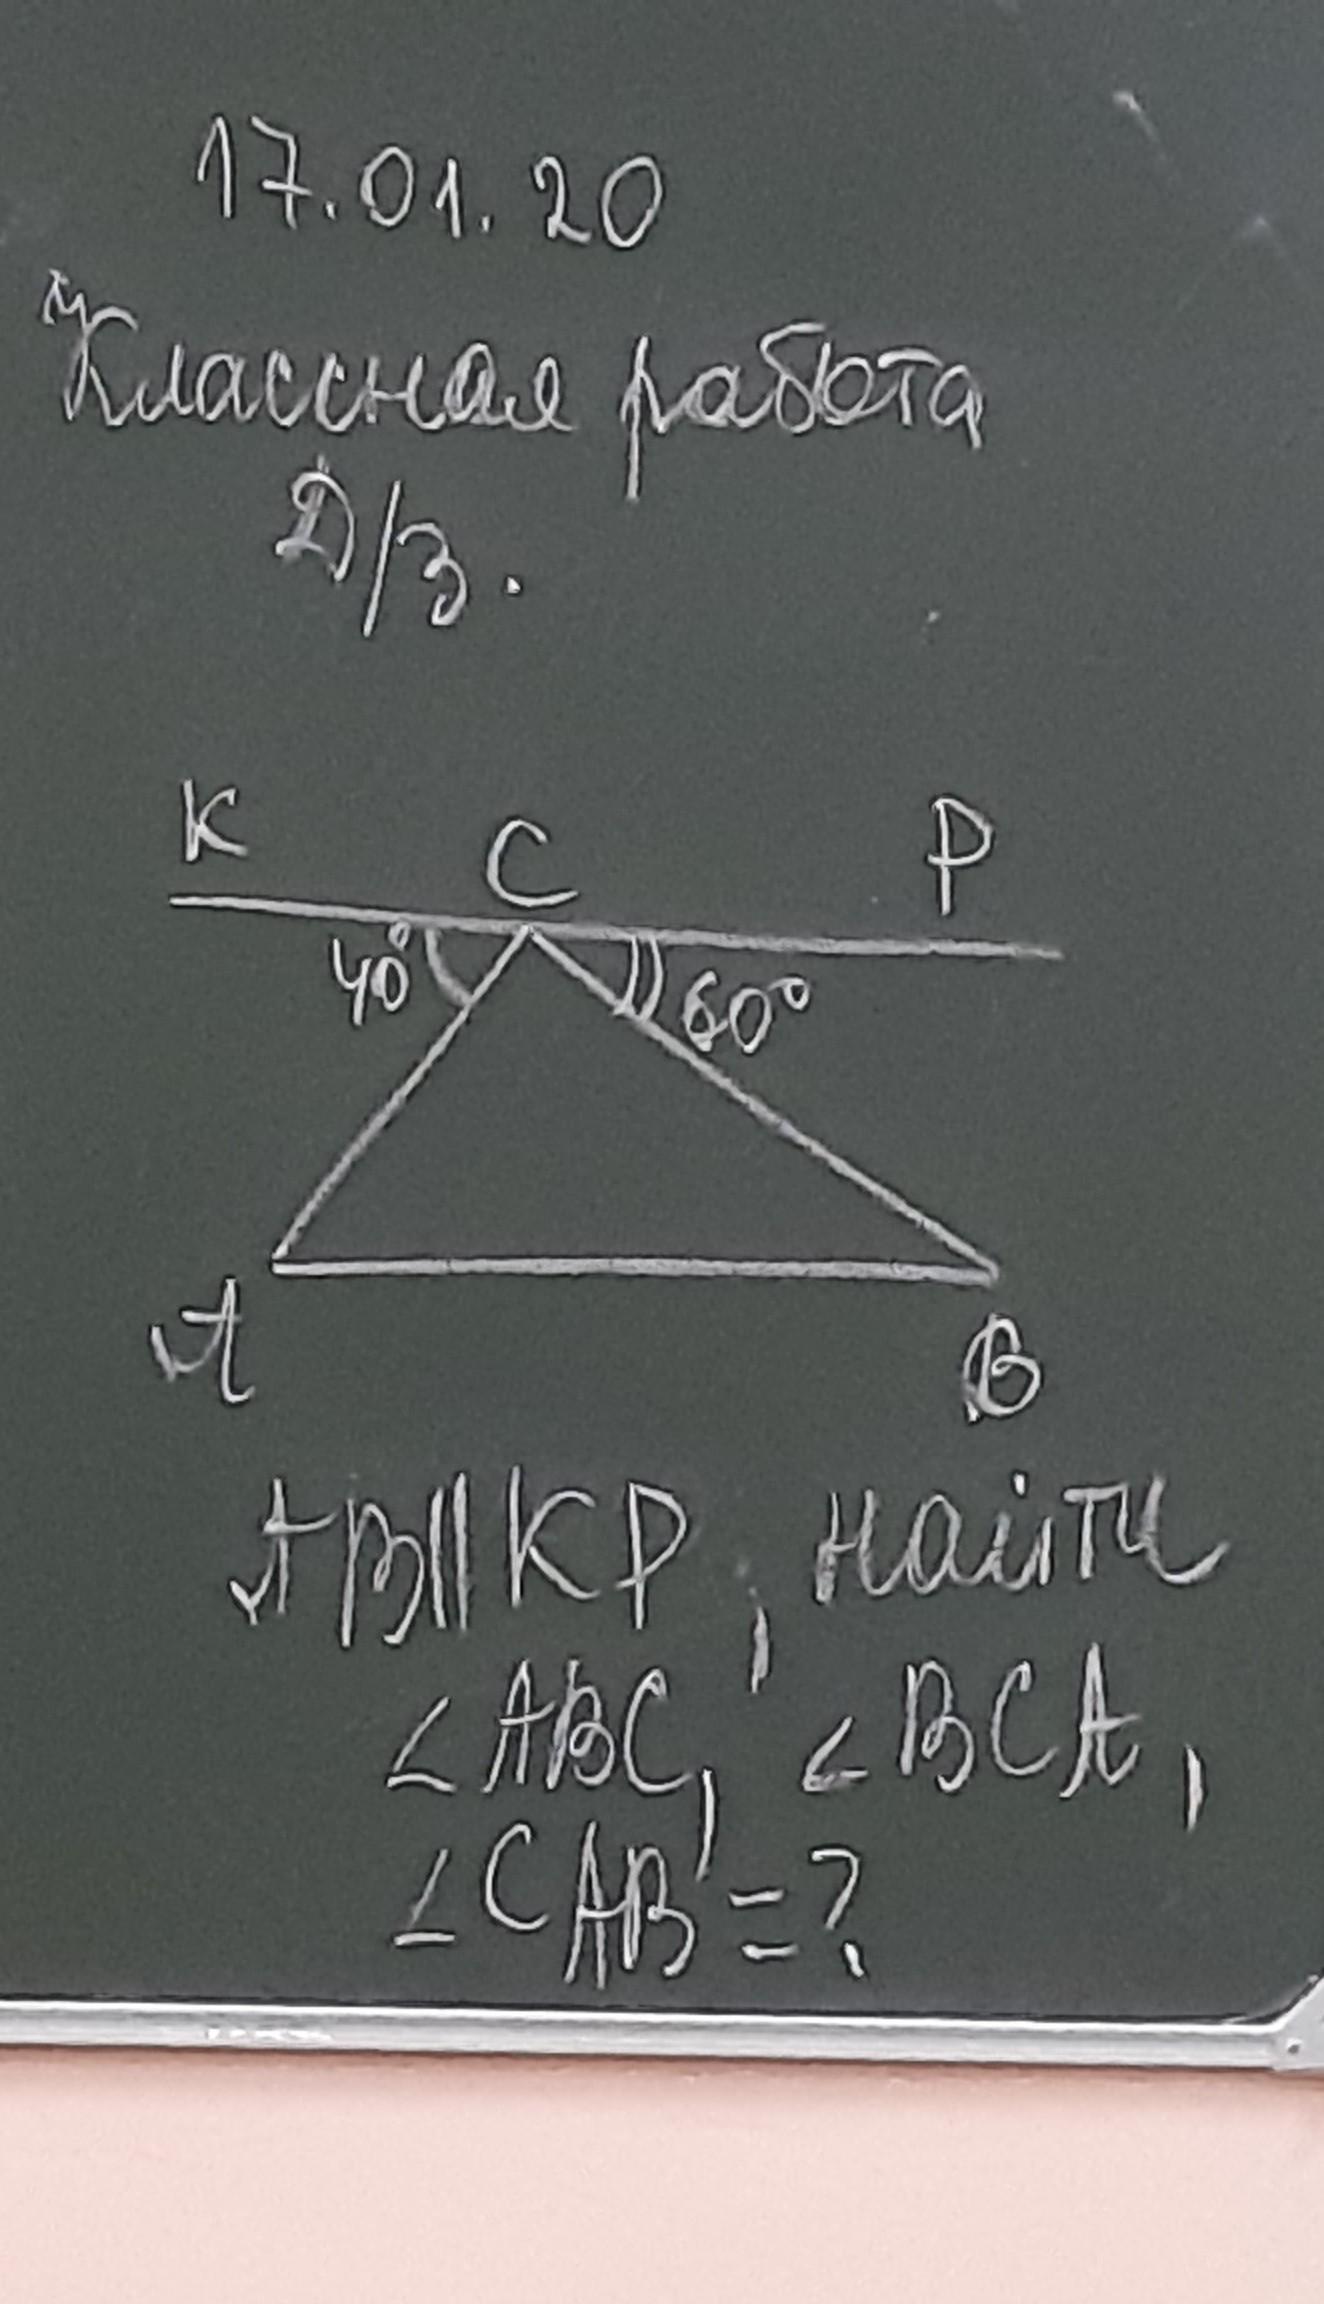 17.01.20
Классная работа
Д/з.
К C P
40° 60°
A B
AB||KP, найти
∠ABC, ∠BCA,
∠CAB = ?